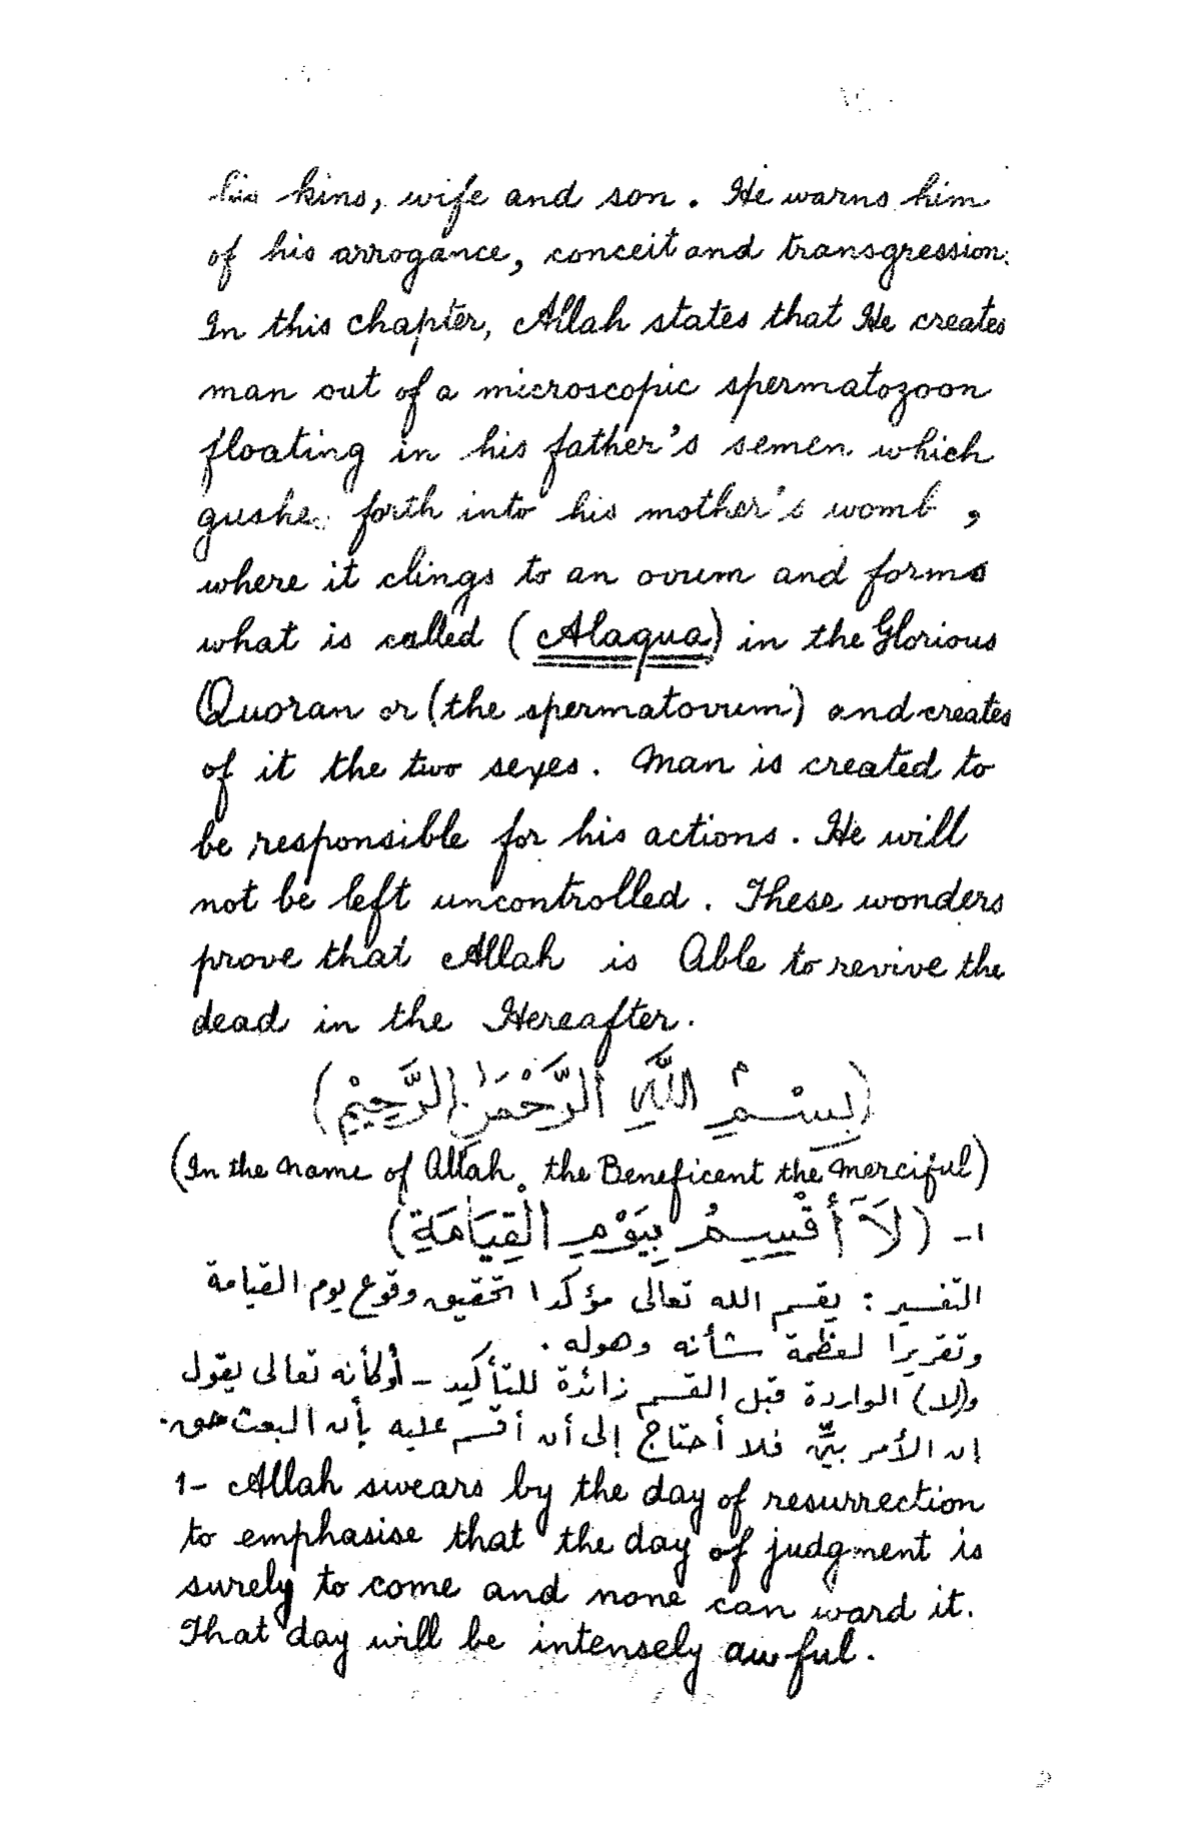 his kins, wife and son. He warns him
of his arrogance, conceit and transgression.
In this chapter, Allah states that He creates
man out of a microscopic spermatozoon
floating in his father's semen which
gushe forth into his mother's womb,
where it clings to an ovum and forms
what is called (Alaqua) in the Glorious
Quoran or (the spermatovum) and creates
of it the two sexes. Man is created to
be responsible for his actions. He will
not be left uncontrolled. These wonders
prove that Allah is Able to revive the
dead in the Hereafter.
(بِسْمِ اللَّهِ الرَّحْمَنِ الرَّحِيْمِ)
(In the name of Allah, the Beneficent the Merciful)
١- (لَآ أُقْسِمُ بِيَوْمِ الْقِيَامَةِ)
التفسير: يقسم الله تعالى مؤكدا تحقيق وقوع يوم القيامة
وتقريرا لعظمة شأنه وهوله.
و(لا) الواردة قبل القسم زائدة للتأكيد - أو كأنه تعالى يقول
إن الأمر بيّن فلا أحتاج إلى أن أقسم عليه بأن البعث حق.
1- Allah swears by the day of resurrection
to emphasise that the day of judgment is
surely to come and none can ward it.
That day will be intensely awful.